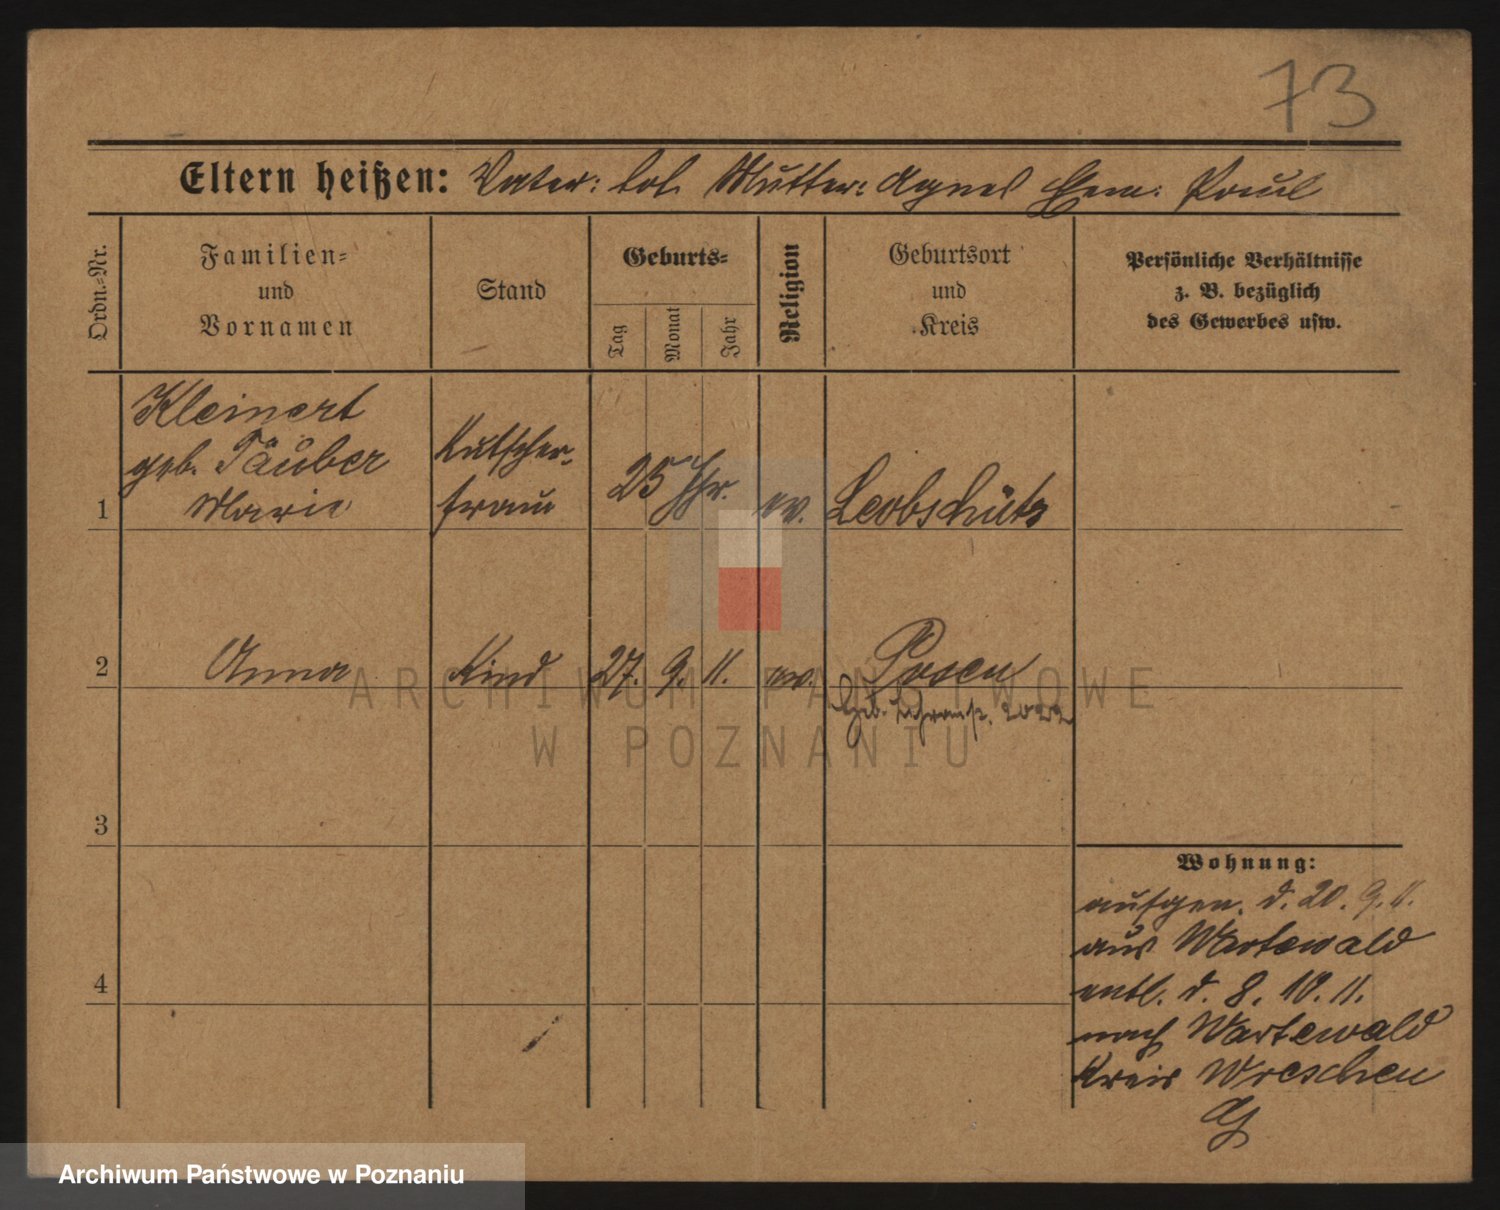 73
Eltern heißen: Vater: tot. Mutter: Agnes Paul
Ordn.-Nr.
Familien-
und
Vornamen
Stand
Geburts-
Tag
Monat
Jahr
Religion
Geburtsort
und
Kreis
Persönliche Verhältnisse
z. B. bezüglich
des Gewerbes usw.
Kleinert
geb. Täuber
Marie
1
Kutscher-
frau
25 Jhr.
ev.
Leobschütz
2
Anna
Kind
27. 9. 11.
ev.
Posen
3
4
Wohnung:
aufgen. d. 20. 9. 11.
aus Wartewald
entl. d. 8. 10. 11.
nach Wartewald
Kreis Wreschen
ARCHIWUM PAŃSTWOWE
W POZNANIU
Archiwum Państwowe w Poznaniu